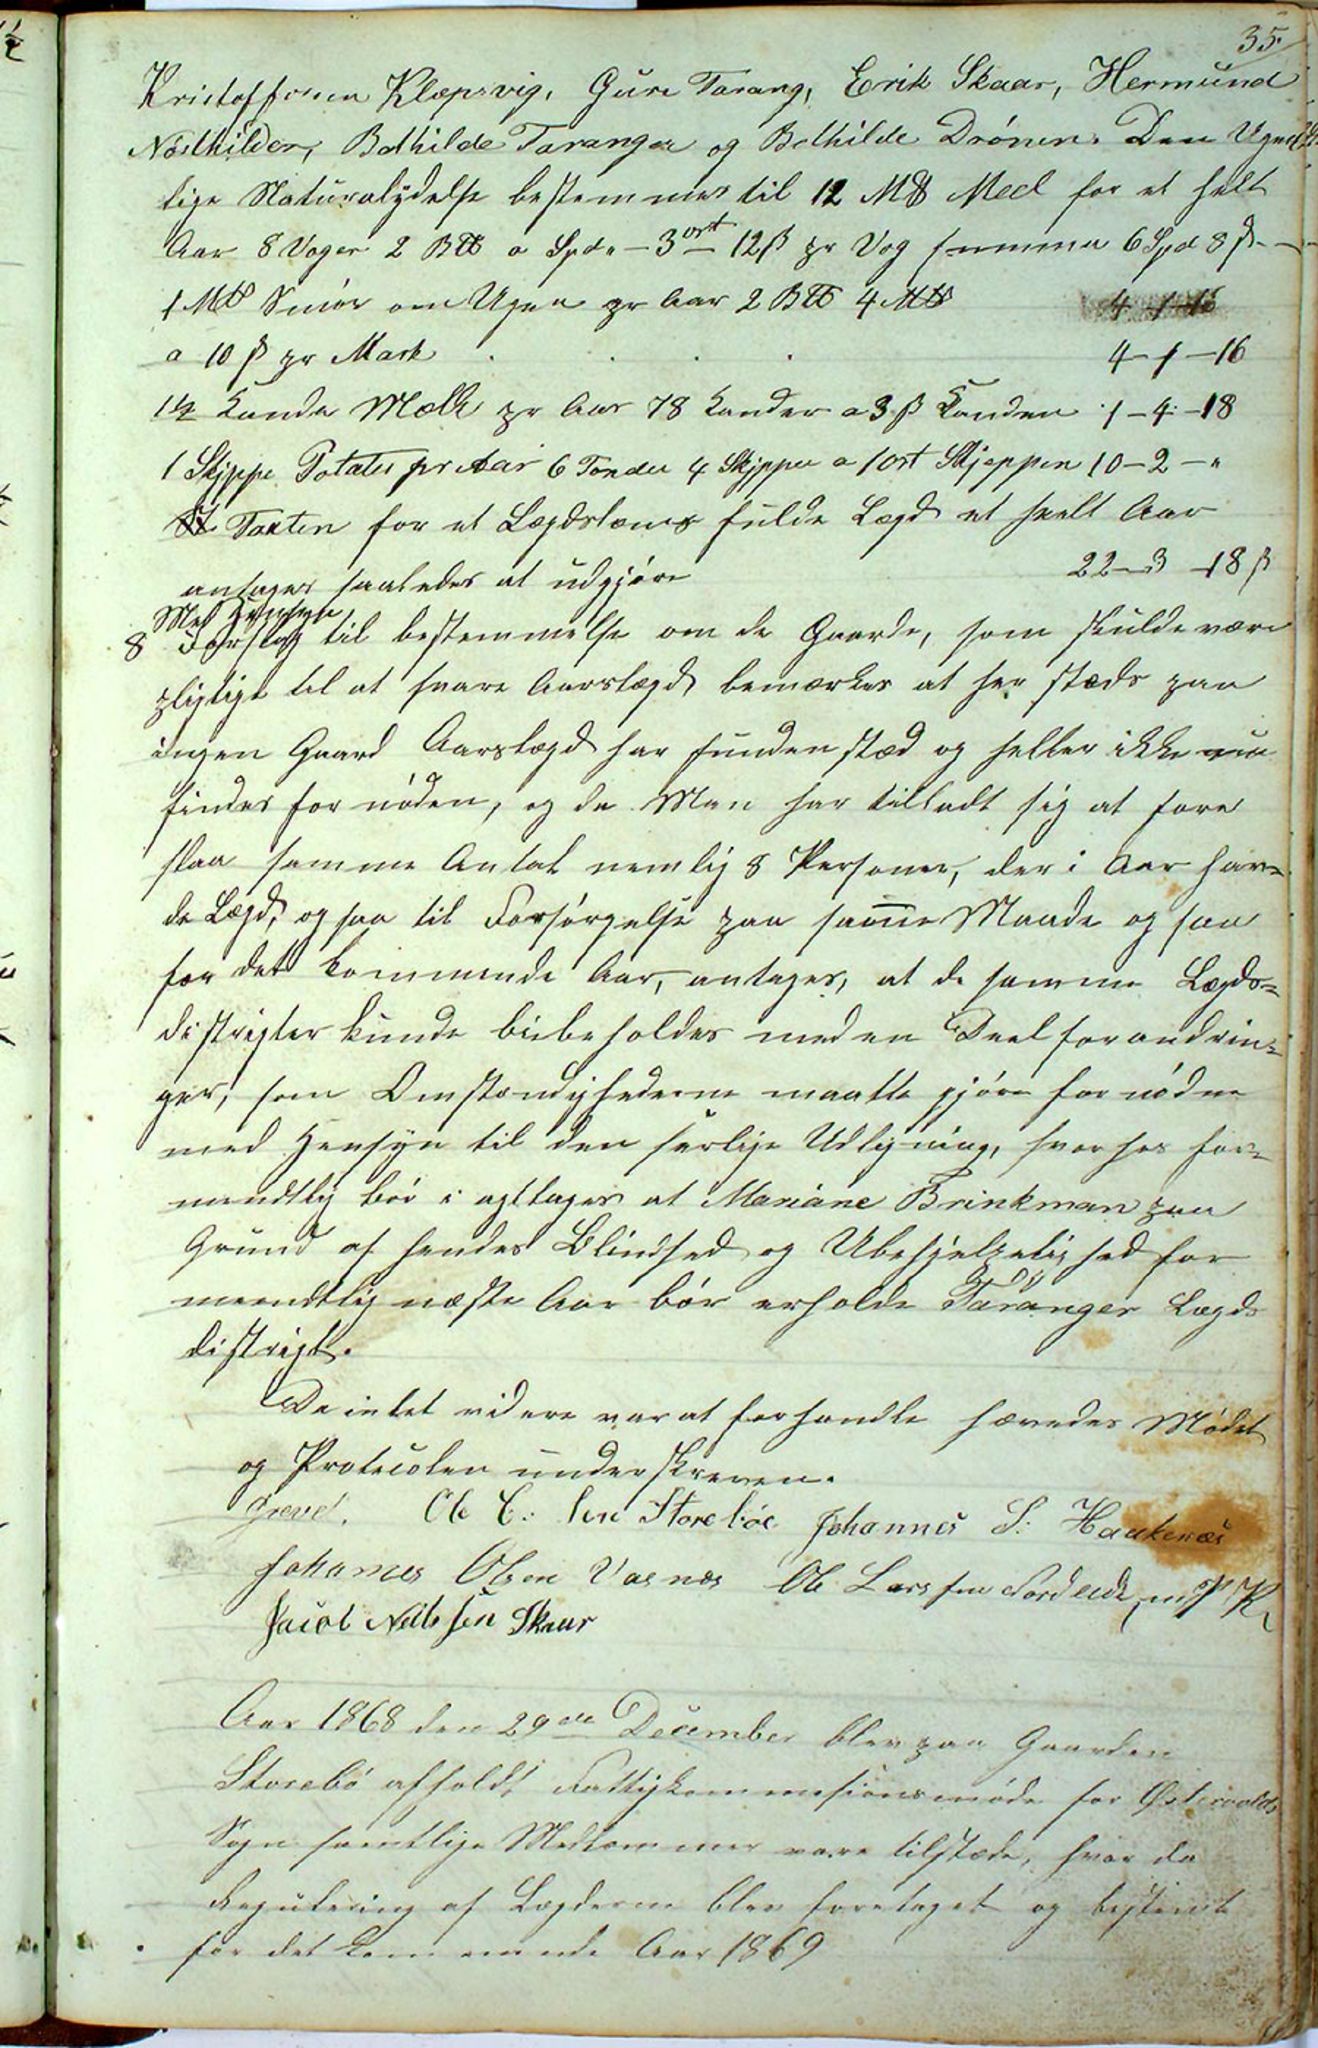 35.
Kristoffersen Klæpsvig, Guri Tarang, Erik Skaar, Hermund
Nordhilder, Bothilde Taranger og Bothilde Drönen. Den Ugent-
lige Naturalydelse bestemmes til 12 M℔ Meel for et helt
Aar 8 Voger 2 B℔ a Spd. „ - 3 ort - 12 β pr Vog summa 6 Spd 8 β -
1 M℔ Smör om Ugen pr Aar 2 B℔ 4 M℔ 4-1-16
a 10 β pr Mark . . . 4-1-16
1½ Kande Melk pr Aar 78 Kander a 3 β Kanden 1-4-18
1 Skjppe Potates pr Aar 6 Tonder 4 Skjpper a 1 ort Skjeppen 10-2-„
Taxten for et Lægdslems fulde Lægd et heelt Aar
antages saaledes at udgjöre 22-3-18 β
Med Hensyn
8 Forslag til bestemmelse om de Gaarde, som skulde være
pligtige til at svare Aarslægd bemærkes at her steds paa
ingen Gaard Aarslægd har funden sted og heller ikke nu
findes fornöden, og da Man har tilladt sig at fore
slaa samme Antal nemlig 8 Personer, der i Aar hav-
de Lægd, ogsaa til Forsörgelse paa samme Maade ogsaa
for det kommende Aar, antages, at de samme Lægds-
distrigter kunde bibeholdes med en Deel forandrin-
ger, som Omstændighederne maatte gjöre fornödne
med Hensyn til den særlige Udligning, hvorhos for-
mendtlig bör iagttages at Mariane Brinkman paa
Grund af hendes Blindhed og Ubehjelpelighed for
meendtlig næste Aar bör erholde Taranger Lægds
distrigt.
Da intet videre var at forhandle hævedes Mödet
og Protocolen underskreven.
Greve. Ole C: sen Storeböe Johannes S: Haukenæs
Johannes Olsen Vasnes Ole Larssen m P R
Jacob Neilssen Skaar
Aar 1868 den 29de December blev paa Gaarden
Storebö afholdt Fattigkommisionsmöde for Østervolds
Sogn samtlige Medlemmer vare tilstæde, hvor da
Regulering af Lægderne blev foretaget og bestemt
for det kommende Aar 1869